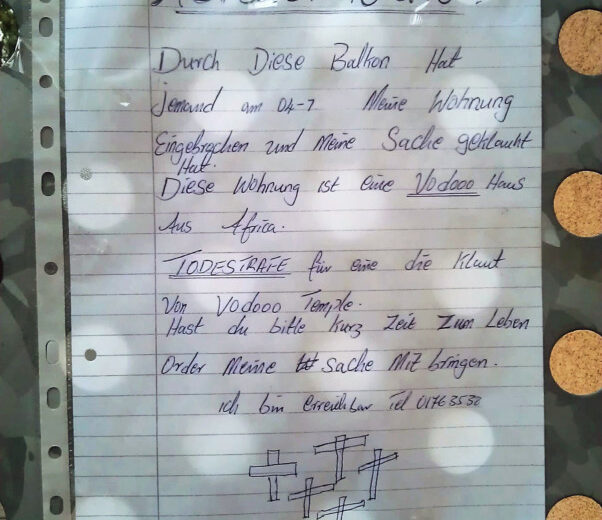 Durch Diese Balkon Hat
jemand am 04-7 Meine Wohnung
Eingebrochen und Meine Sache geklaut
Hat.
Diese Wohnung ist eine Vodooo Haus
Aus Africa.
TODESTRAFE für eine die Klaut
Von Vodooo Temple.
Hast du bitte Kurz Zeit Zum Leben
Order Meine sache Mit bringen.
ich bin erreichbar Tel 0176 3532